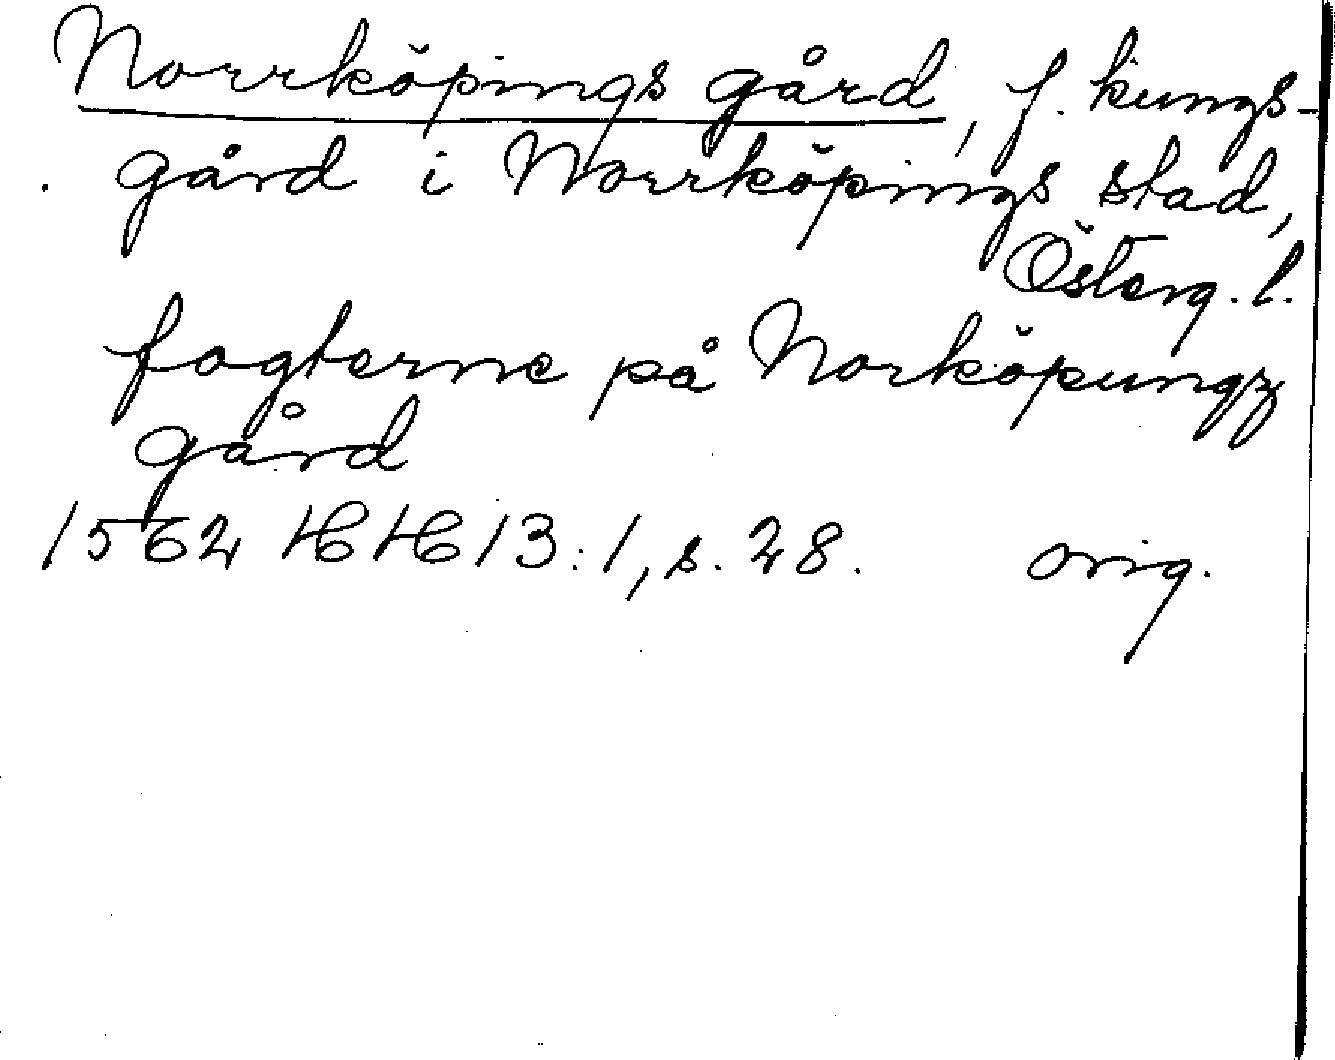 Norrköpings gård, f. kungs-
gård i Norrköpings stad,
Österg. l.
fogterne på Norköpungz
gård
1562 HH 13:1, s. 28. orig.